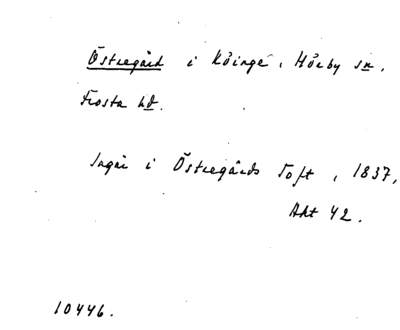 Östregård i Köinge, Hörby sn.
Frosta hd.
Ingår i Östregårds Toft, 1837,
Akt 42.
10446.